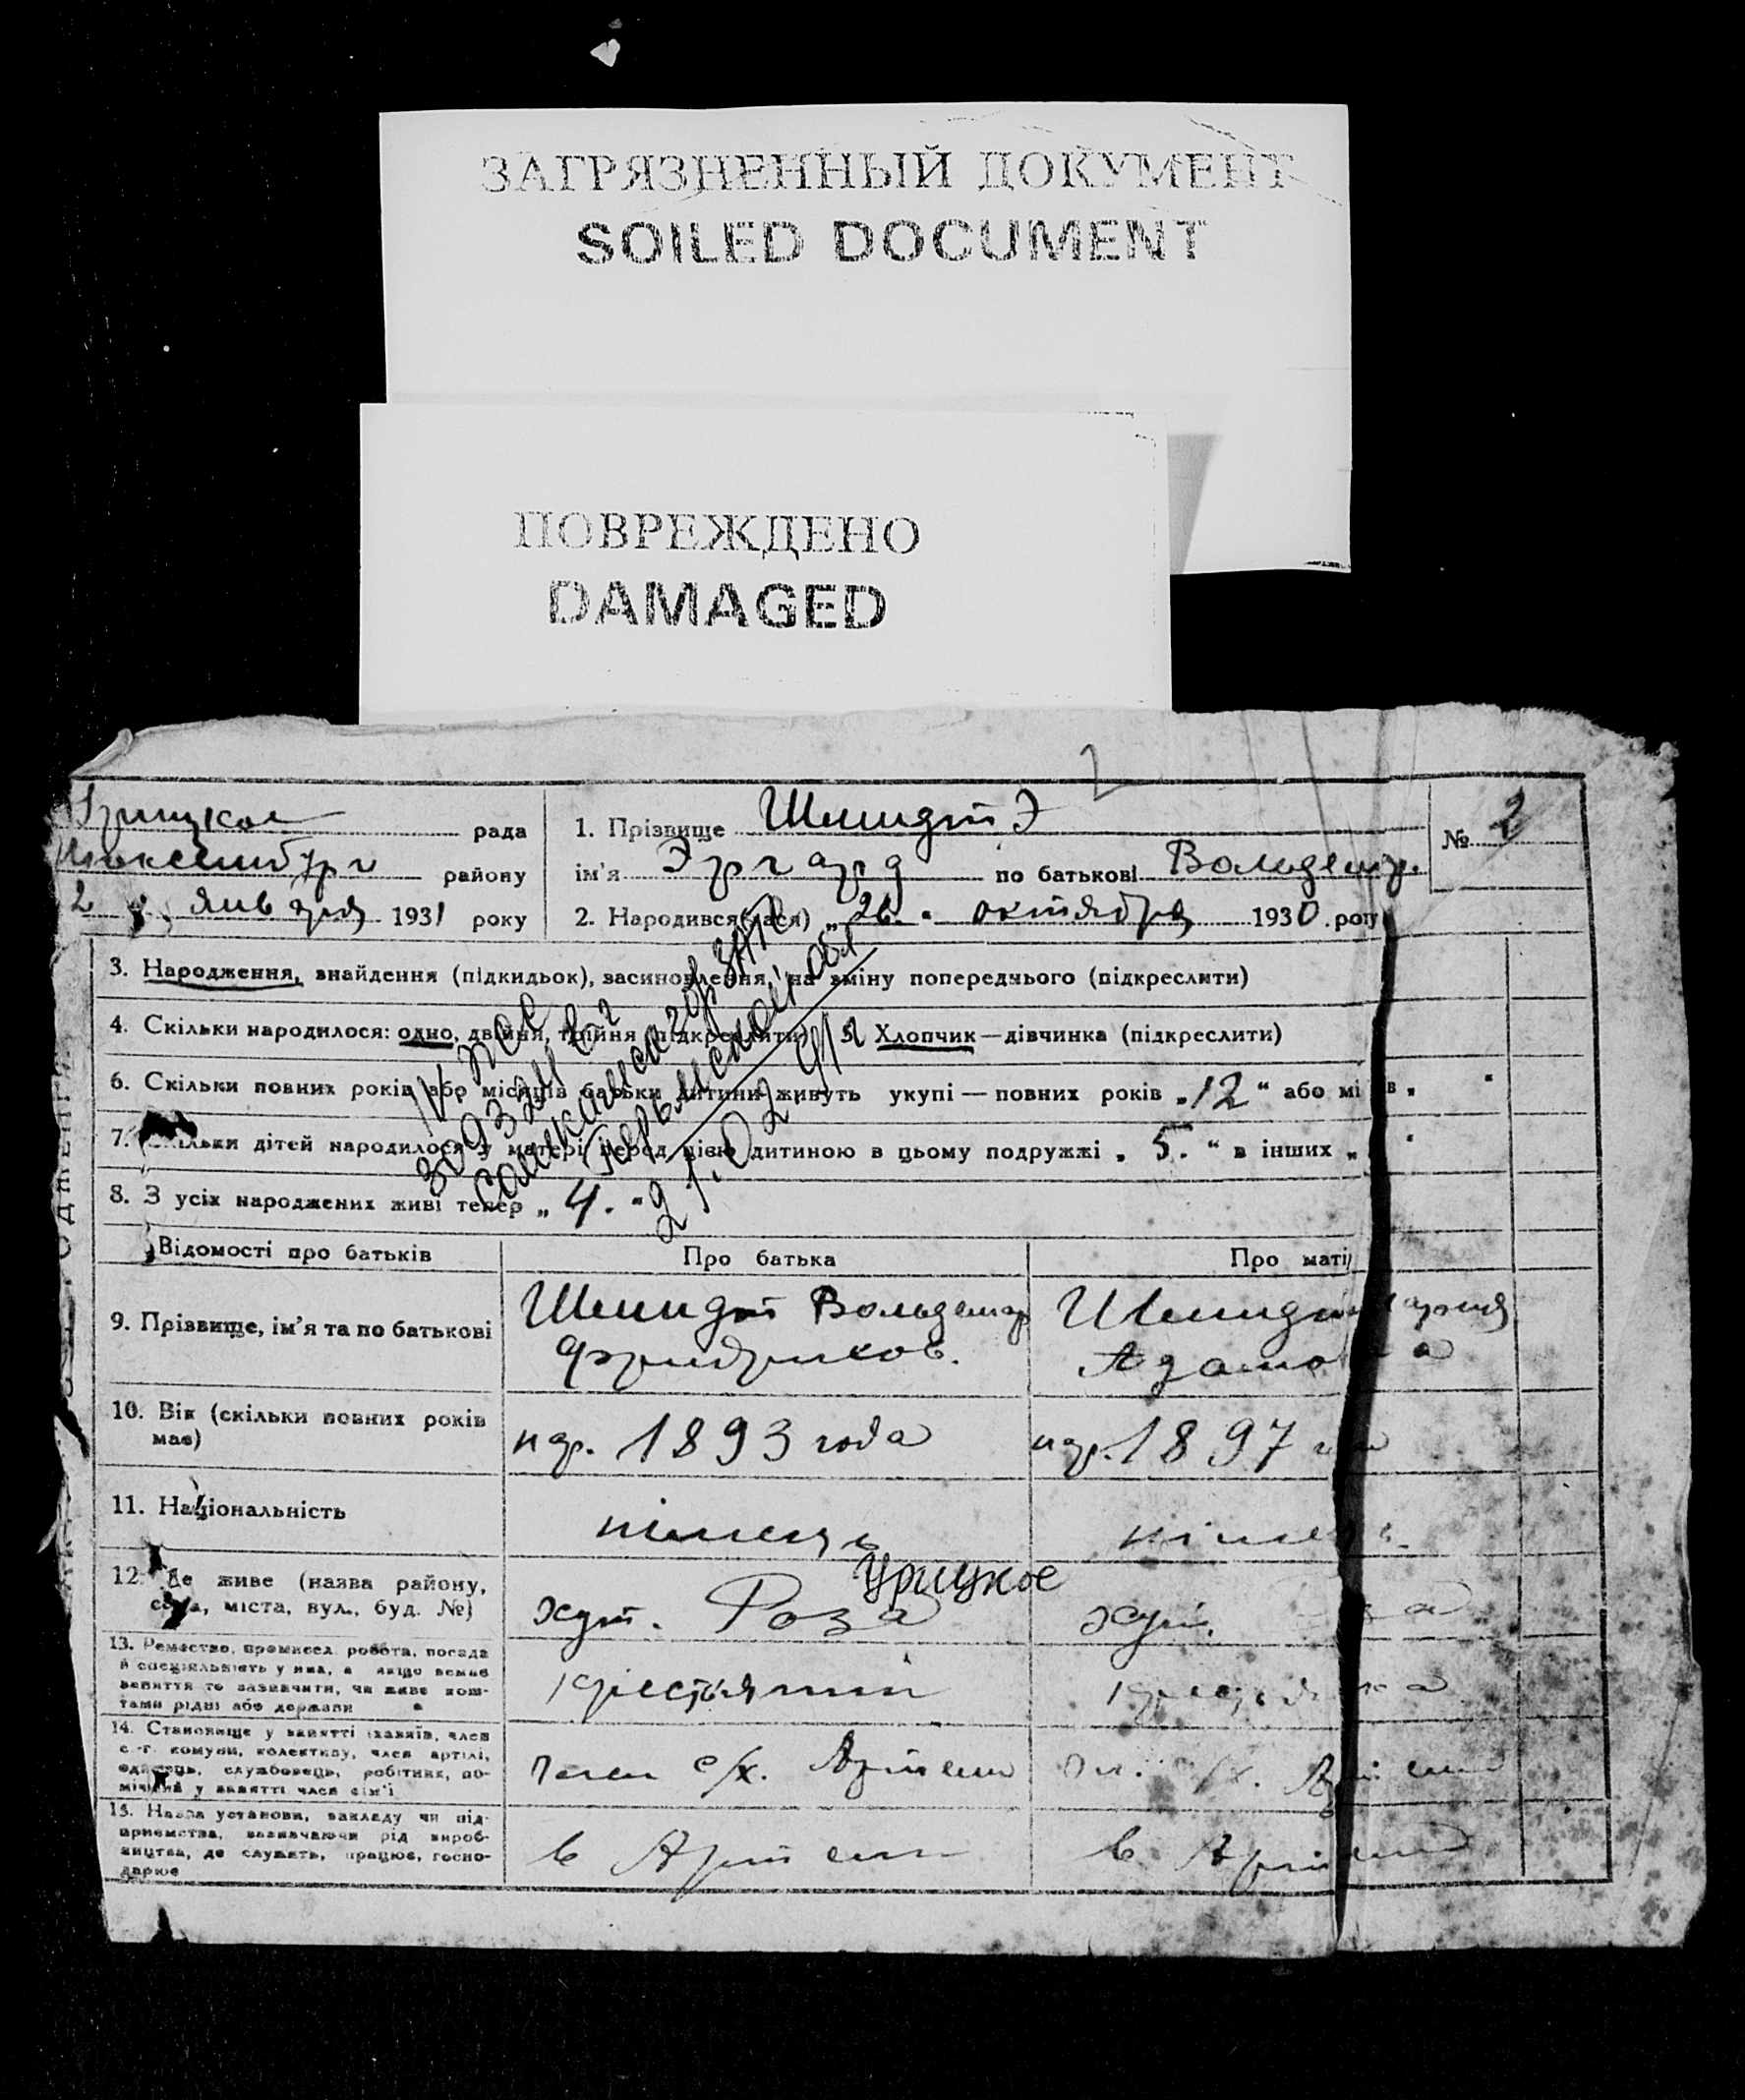 ЗАГРЯЗНЕННЫЙ ДОКУМЕНТ
SOILED DOCUMENT
ПОВРЕЖДЕНО
DAMAGED
рада
Люксембург району
2 января 1931 року
1. Прізвище Шмидт Э
ім'я Эргард по батькові Вольдемар.
2. Народився(лася) „26." октября 1930 року
№ 2
3. Народження, знайдення (підкидьок), засиновлення, на зміну попереднього (підкреслити)
4. Скільки народилося: одно, двійня, трійня (підкреслити) 5. Хлопчик—дівчинка (підкреслити)
6. Скільки повних років або місяців батьки дитини живуть укупі—повних років „12" або мі в „ "
7. Скільки дітей народилося у матері перед цією дитиною в цьому подружжі „5." в інших „ "
8. З усіх народжених живі тепер „4."
Відомості про батьків
Про батька
Про матір
9. Прізвище, ім'я та по батькові
Шмидт Вольдемар
Фридрихов.
Шмидт Мария
Адамовна
10. Вік (скільки повних років має)
нар. 1893 года
нар. 1897 года
11. Національність
німець
німець.
12. Де живе (назва району, села, міста, вул., буд. №)
Урицкое
хут. Роза
хут. Роза
13. Ремество, промисел, робота, посада й спеціяльність у них, а якщо немає заняття то зазначити, чи живе коштами рідні або держави
14. Становище у занятті (хазяїн, член с.-г. комуни, колективу, член артілі, одинець, службовець, робітник, помічний у занятті член сім'ї
член с/х. Артели
с/х. Артели
15. Назва установи, закладу чи підприємства, зазначаючи рід виробництва, де служить, працює, господарює
в Артели
в Артели